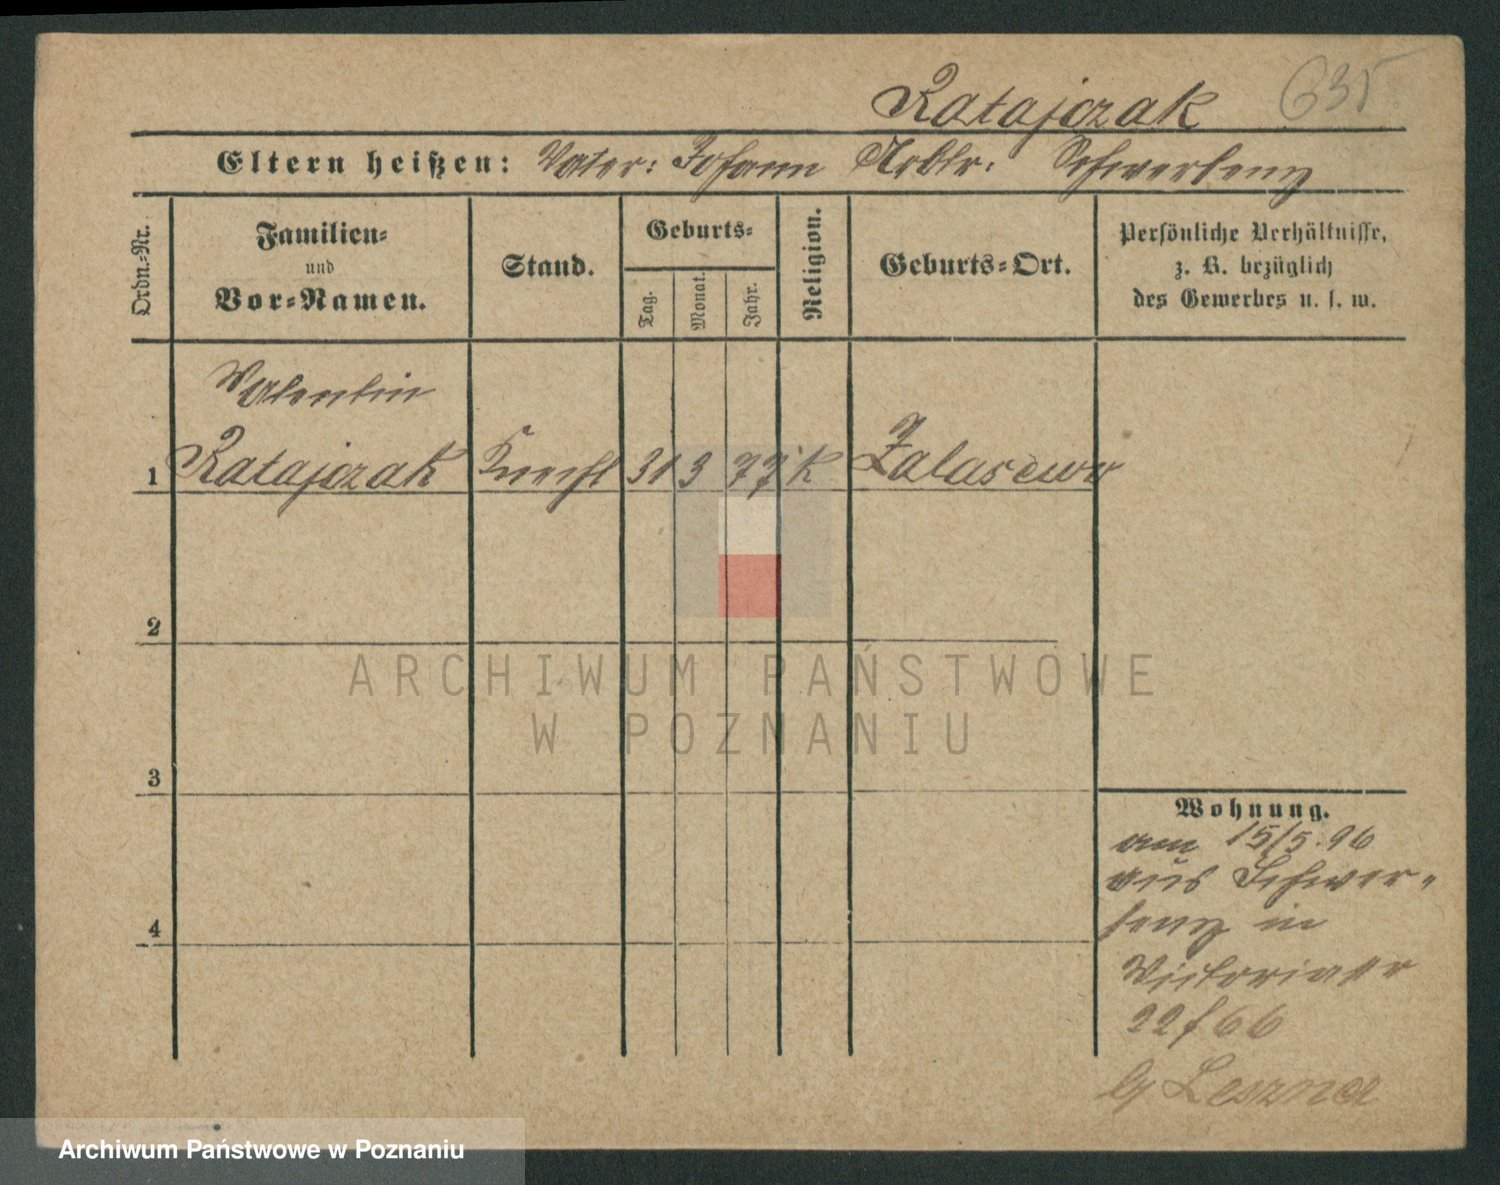 635
Ratajczak
Eltern heißen: Vater: Johann Arbtr. Schwersenz
Ordn.-Nr.
Familien-
und
Vor-Namen.
Stand.
Geburts-
Tag.
Monat.
Jahr.
Religion.
Geburts-Ort.
Persönliche Verhältnisse,
z. B. bezüglich
des Gewerbes u. s. w.
Valentin
1 Ratajczak Knecht 31 3 77 K Zalasewo
2
3
4
Wohnung.
am 15/5.96
aus Schwer-
senz in
Victoriastr
22 f 66
b/ Leszner
ARCHIWUM PAŃSTWOWE
W POZNANIU
Archiwum Państwowe w Poznaniu